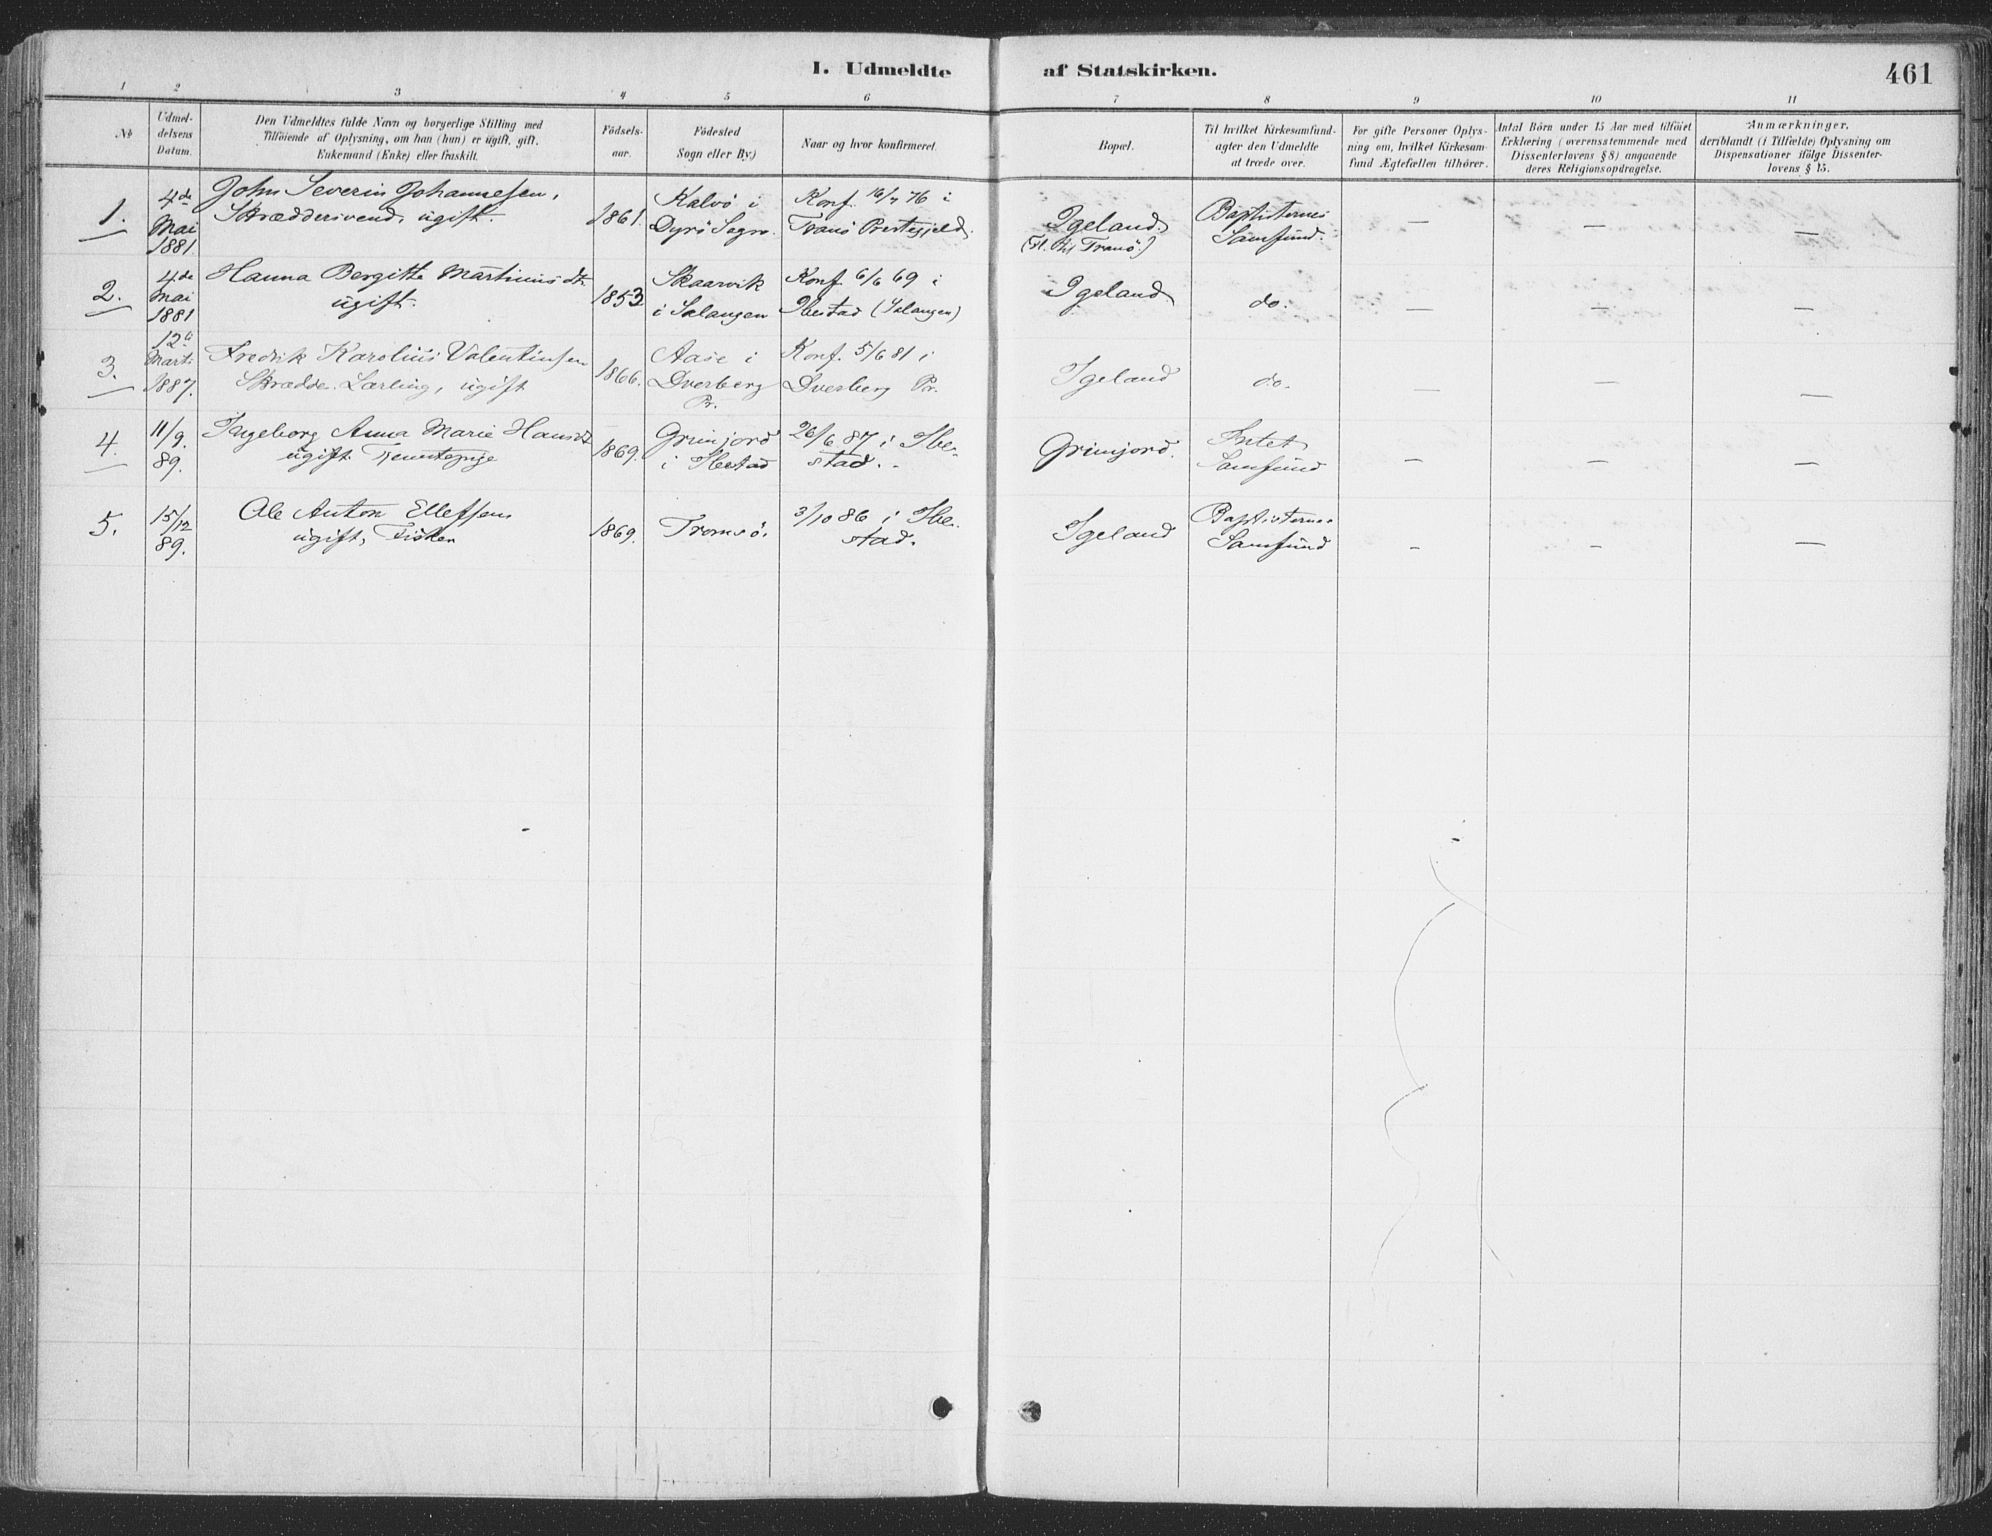 I. Udmeldte af Statskirken. 461
1 2 3 4 5 6 7 8 9 10 11
№
Udmel-
delsens
Datum.
Den Udmeldtes fulde Navn og borgerlige Stilling med
Tilföiende af Oplysning, om han (hun) er ugift, gift,
Enkemand (Enke) eller fraskilt.
Födsels-
aar.
Födested
Sogn eller By.)
Naar og hvor konfirmeret.
Bopæl.
Til hvilket Kirkesamfund-
agter den Udmeldte
at træde over.
For gifte Personer Oplys-
ning om, hvilket Kirkesam-
fund Ægtefællen tilhörer.
Antal Börn under 15 Aar med tilföiet
Erklæring (overensstemmende med
Dissenterlovens § 8) angaaende
deres Religionsopdragelse.
Anmærkninger,
deriblandt (i Tilfælde) Oplysning om
Dispensationer ifölge Dissenter-
lovens § 15.
1.
4de
Mai
1881.
John Severin Johannesen,
Skræddersvend, ugift.
1861.
Kalvö i
Dyrö Sogn.
Konf. 16/7 76 i
Tranö Prestegjeld.
Igeland.
(Fl. til Tranö.)
Baptisternes
Samfund.
—
—
—
2.
4de
Mai
1881
Hanna Bergitte Martinusdtr.
ugift.
1853
Skaarvik
i Salangen
Konf 6/6 69 i
Ibestad (Salangen)
Igeland.
do.
—
—
—
3.
12te
Marti
1887.
Fredrik Karolius Valentinsen
Skrædde. Lærling, ugift
1866.
Aase i
Dverberg
Pr.
Konf. 5/6 81 i
Dverberg Pr.
Igeland
do.
—
—
—
4.
11/9.
89.
Ingeborg Anna Marie Hansdt
ugift. Tjenstepige
1869.
Grunjord
i Ibestad
26/6 87 i Ibe-
stad.
Grunjord.
Intet
Samfund
—
—
—
5.
15/12
89.
Ole Anton Ellefsen
ugift, Fisker
1869.
Tromsö.
3/10 86 i Ibe-
stad.
Igeland
Baptisternes
Samfund
—
—
—